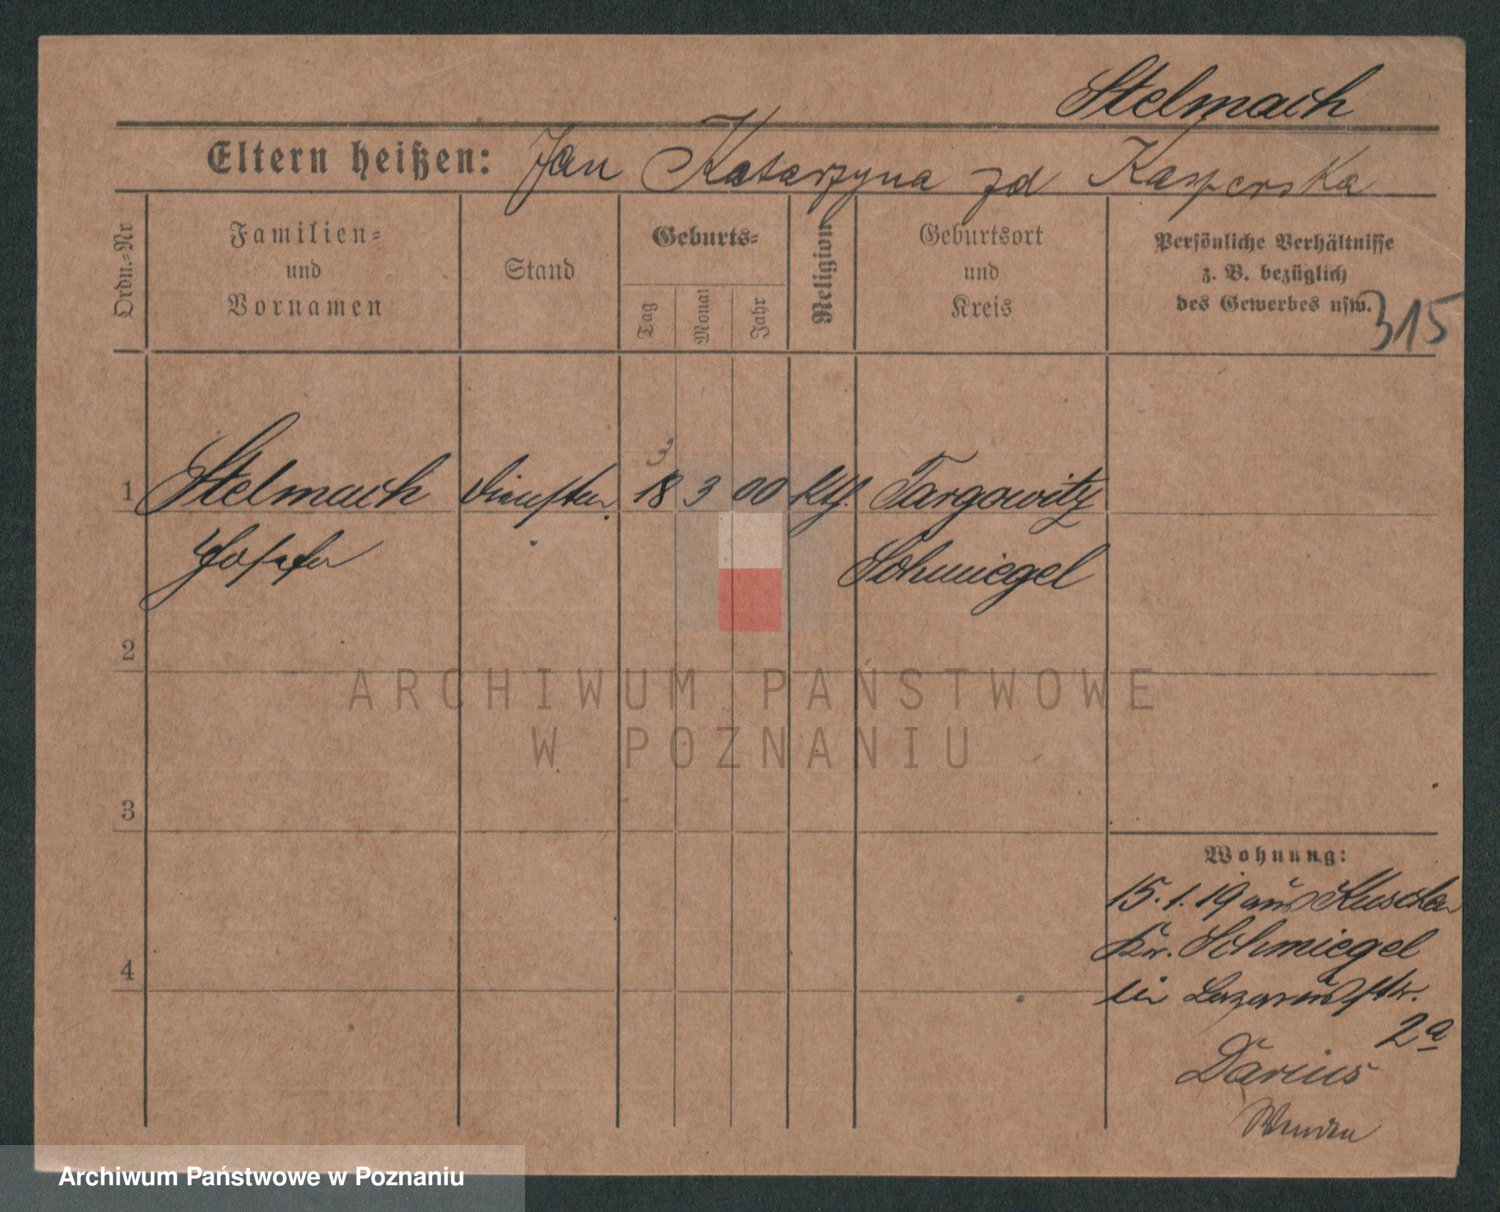 Stelmach
Eltern heißen: Jan Katarzyna zd Kasperska
Ordn.-Nr
Familien- und Vornamen
Stand
Geburts-
Tag
Monat
Jahr
Religion
Geburtsort und Kreis
Persönliche Verhältnisse
z. B. bezüglich
des Gewerbes usw.
315
3
1 Stelmach 18 3 00 kth. Targowitz
Josefa Schmiegel
2
ARCHIWUM PAŃSTWOWE
W POZNANIU
3
Wohnung:
15.1.19 aus Kuschen
Kr. Schmiegel
4
Lazarusstr.
2a
Darius
Archiwum Państwowe w Poznaniu